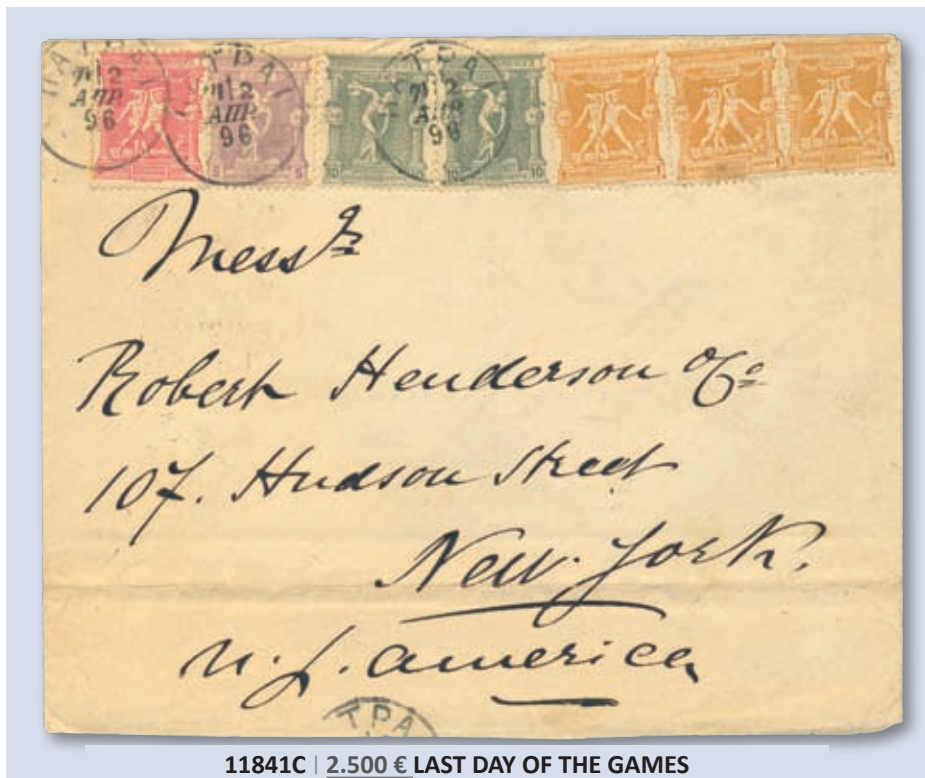 ΑΠΡ
96
ΤΡΑΙ
ΑΠΡ
96
ΤΡΑ
ΑΠΡ
96
5 5
10 10
1 1 1 1 1 1
Messrs
Robert Henderson & Co
107. Hudson Street
New. York.
U. S. America
ΤΡΑ
11841C | 2.500 € LAST DAY OF THE GAMES